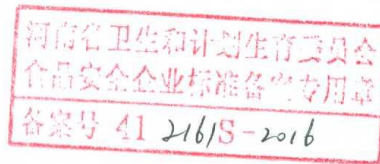 河南省卫生和计划生育委员会
食品安全企业标准备案专用章
备案号 41 2161S-2016